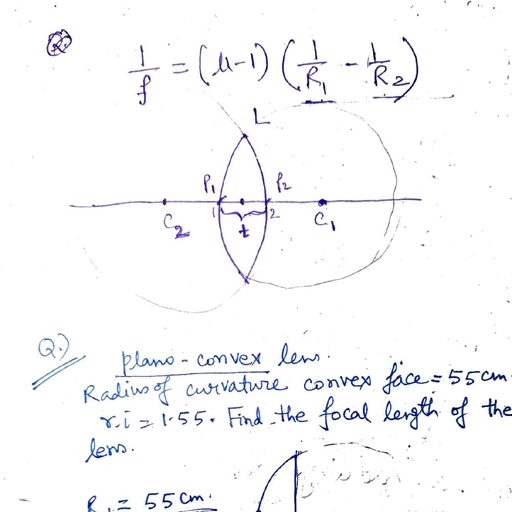 Q.
1/f = (μ-1) (1/R₁ - 1/R₂)
L
P₁ P₂
1 2
C₂ t C₁
Q.) plano-convex lens.
Radius of curvature convex face = 55 cm.
r.i = 1.55. Find the focal length of the
lens.
R₁ = 55 cm.